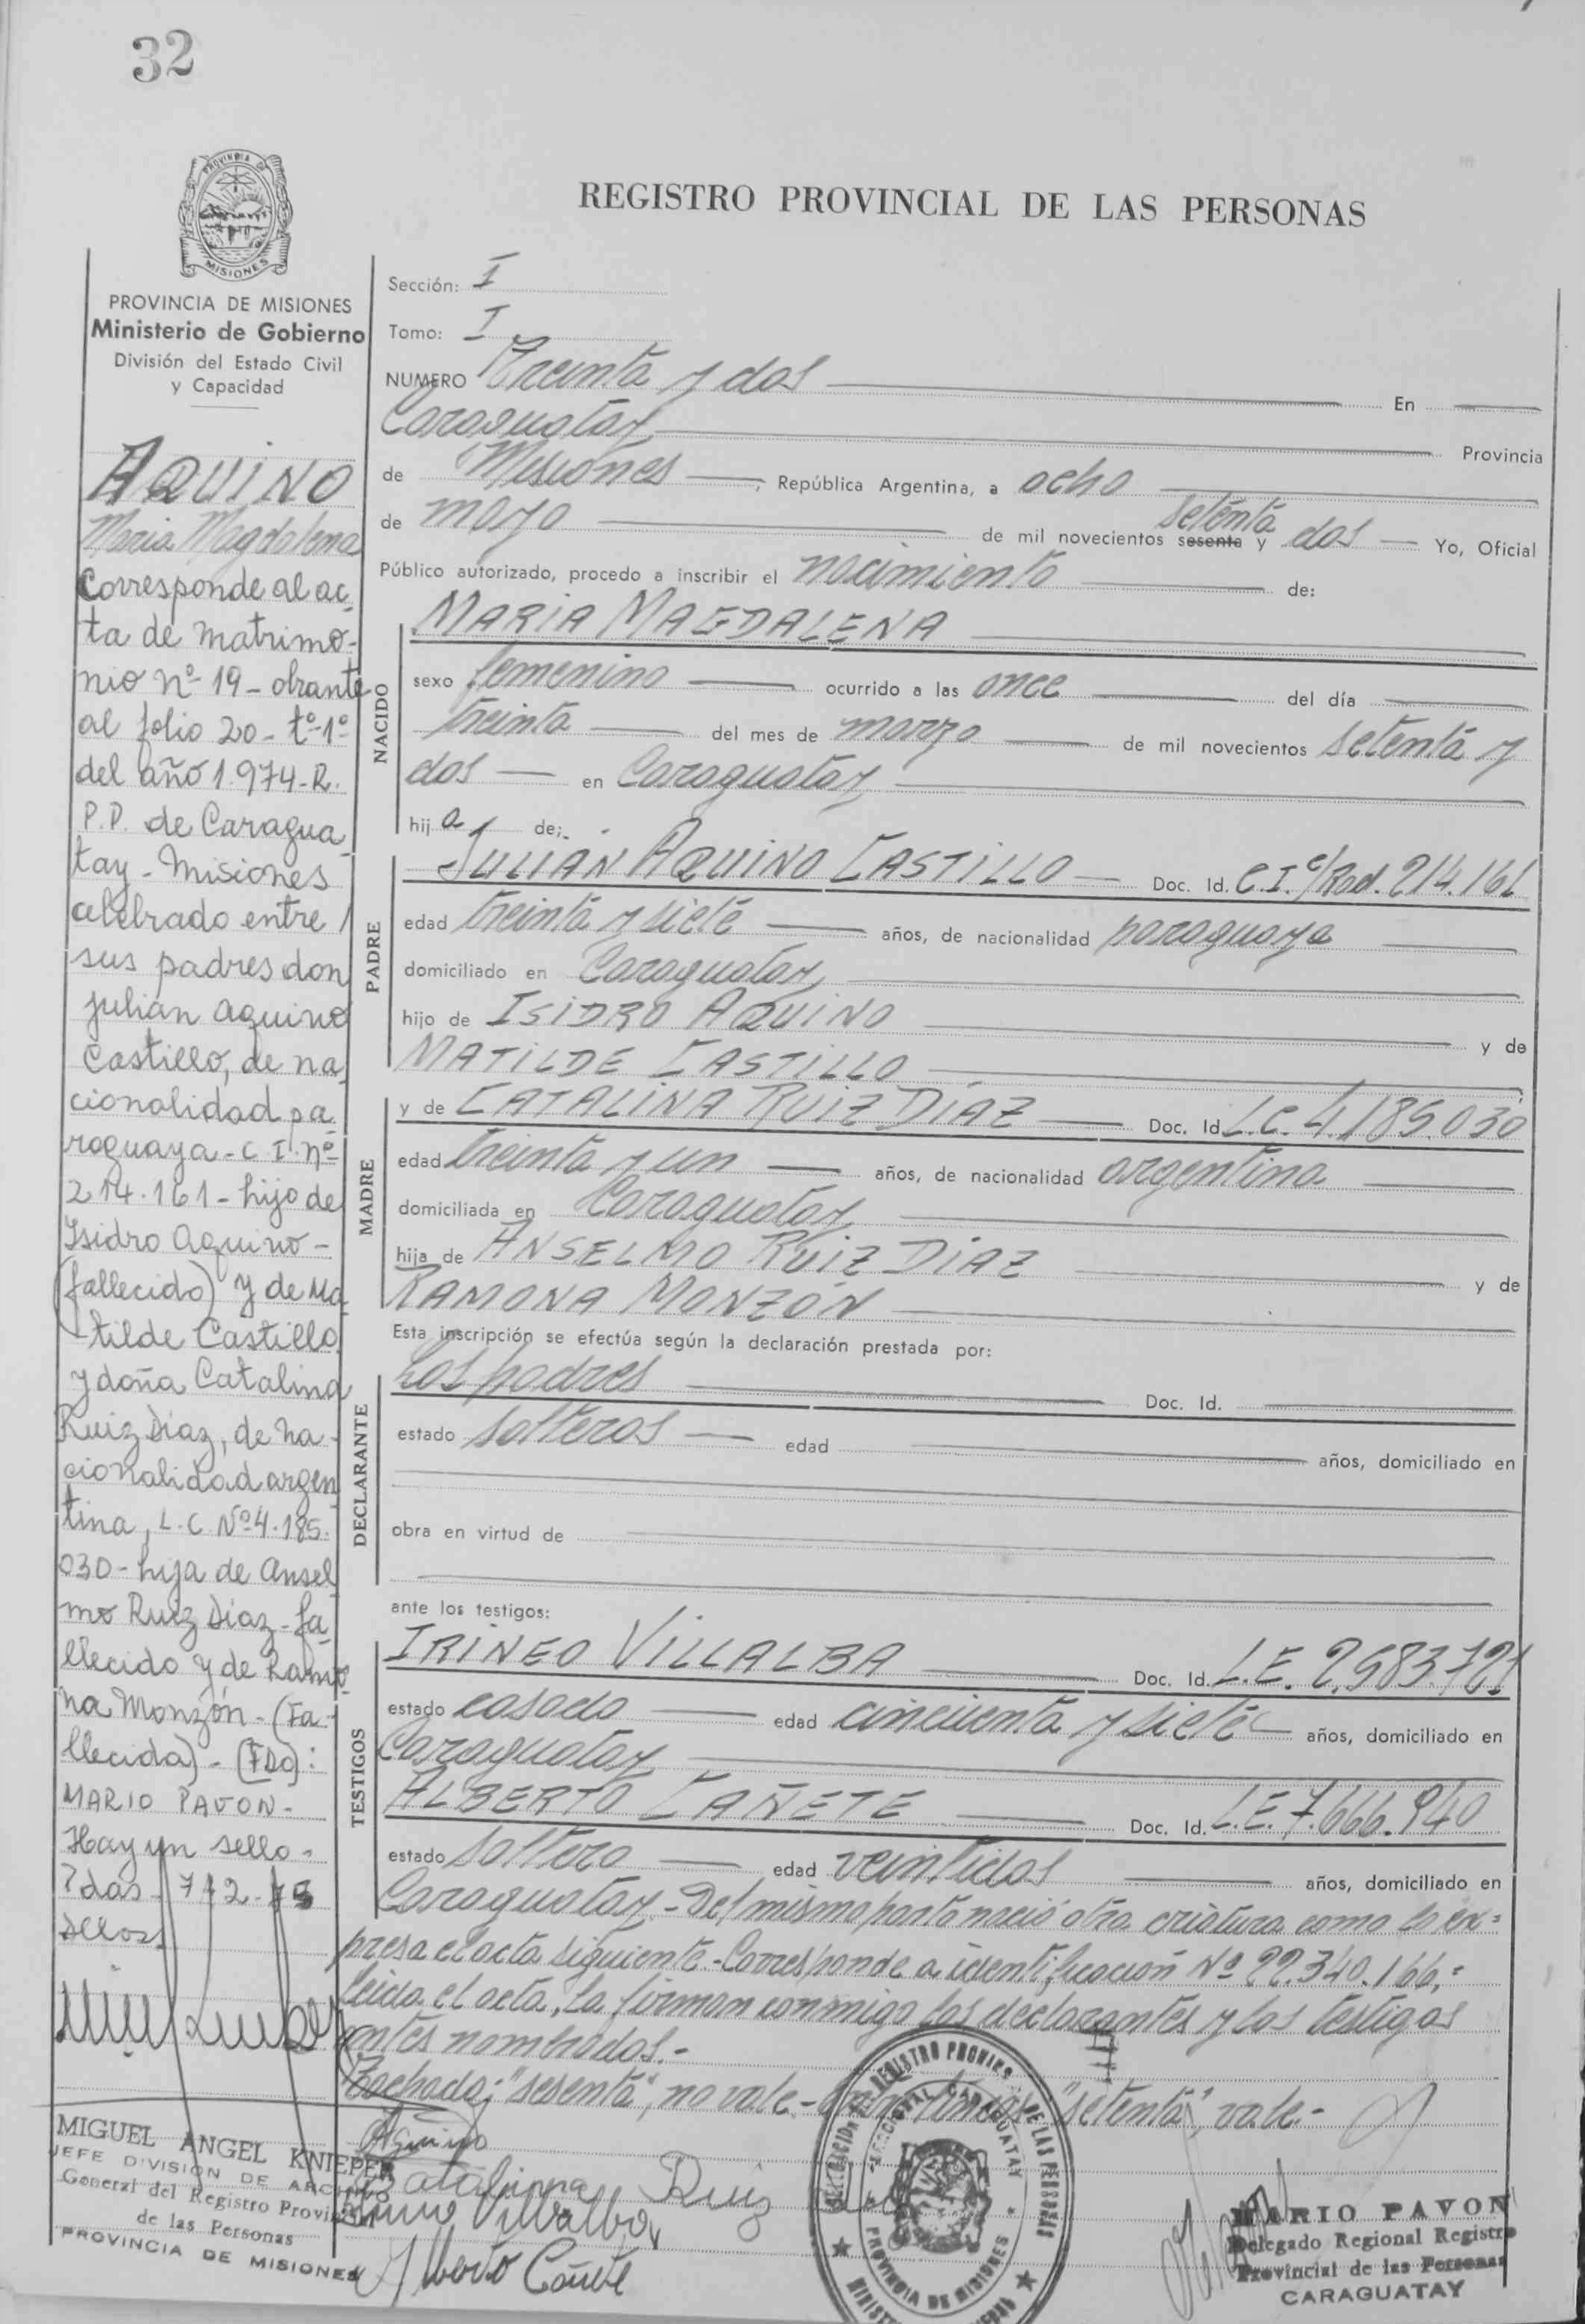 32
PROVINCIA DE
MISIONES
REGISTRO PROVINCIAL DE LAS PERSONAS
PROVINCIA DE MISIONES
Ministerio de Gobierno
División del Estado Civil
y Capacidad
AQUINO
Maria Magdalena
Corresponde al ac-
ta de matrimo-
nio nº 19 - obrante
al folio 20 - tº 1º
del año 1.974 - R.
P.P. de Caragua
tay - Misiones
celebrado entre
sus padres don
Julián Aquino
Castillo, de na
cionalidad pa-
raguaya - C I. nº
214.161 - hijo de
Isidro Aquino -
(fallecido) y de Ma
tilde Castillo
y doña Catalina
Ruiz Diaz, de na-
cionalidad argen
tina, L.C. Nº 4.185.
030 - hija de Ansel
mo Ruiz Diaz - fa-
llecido y de Ramo
na Monzón - (Fa-
llecida) - (FDO):
MARIO PAVON -
Hay un sello -
MIGUEL ANGEL KNIEPER
JEFE DIVISIÓN DE ARCHIVO
General del Registro Provincial
de las Personas
PROVINCIA DE MISIONES
Sección: I
Tomo: I
NUMERO Treinta y dos En
Caraguatay Provincia
de Misiones, República Argentina, a ocho
de mayo de mil novecientos sesenta y setenta dos Yo, Oficial
Público autorizado, procedo a inscribir el nacimiento de:
NACIDO
MARIA MAGDALENA
sexo femenino ocurrido a las once del día
treinta del mes de marzo de mil novecientos setenta y
dos en Caraguatay
hija de:
PADRE
JULIÁN AQUINO CASTILLO Doc. Id. C.I. c/Rad. 214.161
edad treinta y siete años, de nacionalidad paraguaya
domiciliado en Caraguatay
hijo de ISIDRO AQUINO y de
MATILDE CASTILLO
MADRE
y de CATALINA RUIZ DÍAZ Doc. Id. L.C. 4.185.030
edad treinta y un años, de nacionalidad argentina
domiciliada en Caraguatay
hija de ANSELMO RUIZ DÍAZ y de
RAMONA MONZÓN
Esta inscripción se efectúa según la declaración prestada por:
DECLARANTE
Los padres Doc. Id.
estado solteros edad años, domiciliado en
obra en virtud de
ante los testigos:
TESTIGOS
IRINEO VILLALBA Doc. Id. L.E. 2.583.721
estado casado edad cincuenta y siete años, domiciliado en
Caraguatay
ALBERTO CAÑETE Doc. Id. L.E. 7.666.940
estado soltero edad veintidos años, domiciliado en
Caraguatay.- Del mismo parto nació otra criatura como lo ex=
presa el acta siguiente.- Corresponde a identificación Nº 22.340.166.=
Leida el acta, la firman conmigo los declarantes y los testigos
antes nombrados.-
Tachado: "sesenta", no vale - "setenta", vale.-
Aquino
Catalinna Ruiz
Irineo Villalba
Alberto Cañete
PROVINCIA DE MISIONES
SECCIONAL CARAGUATAY
DE LAS PERSONAS
MARIO PAVON
Delegado Regional Registro
Provincial de las Personas
CARAGUATAY